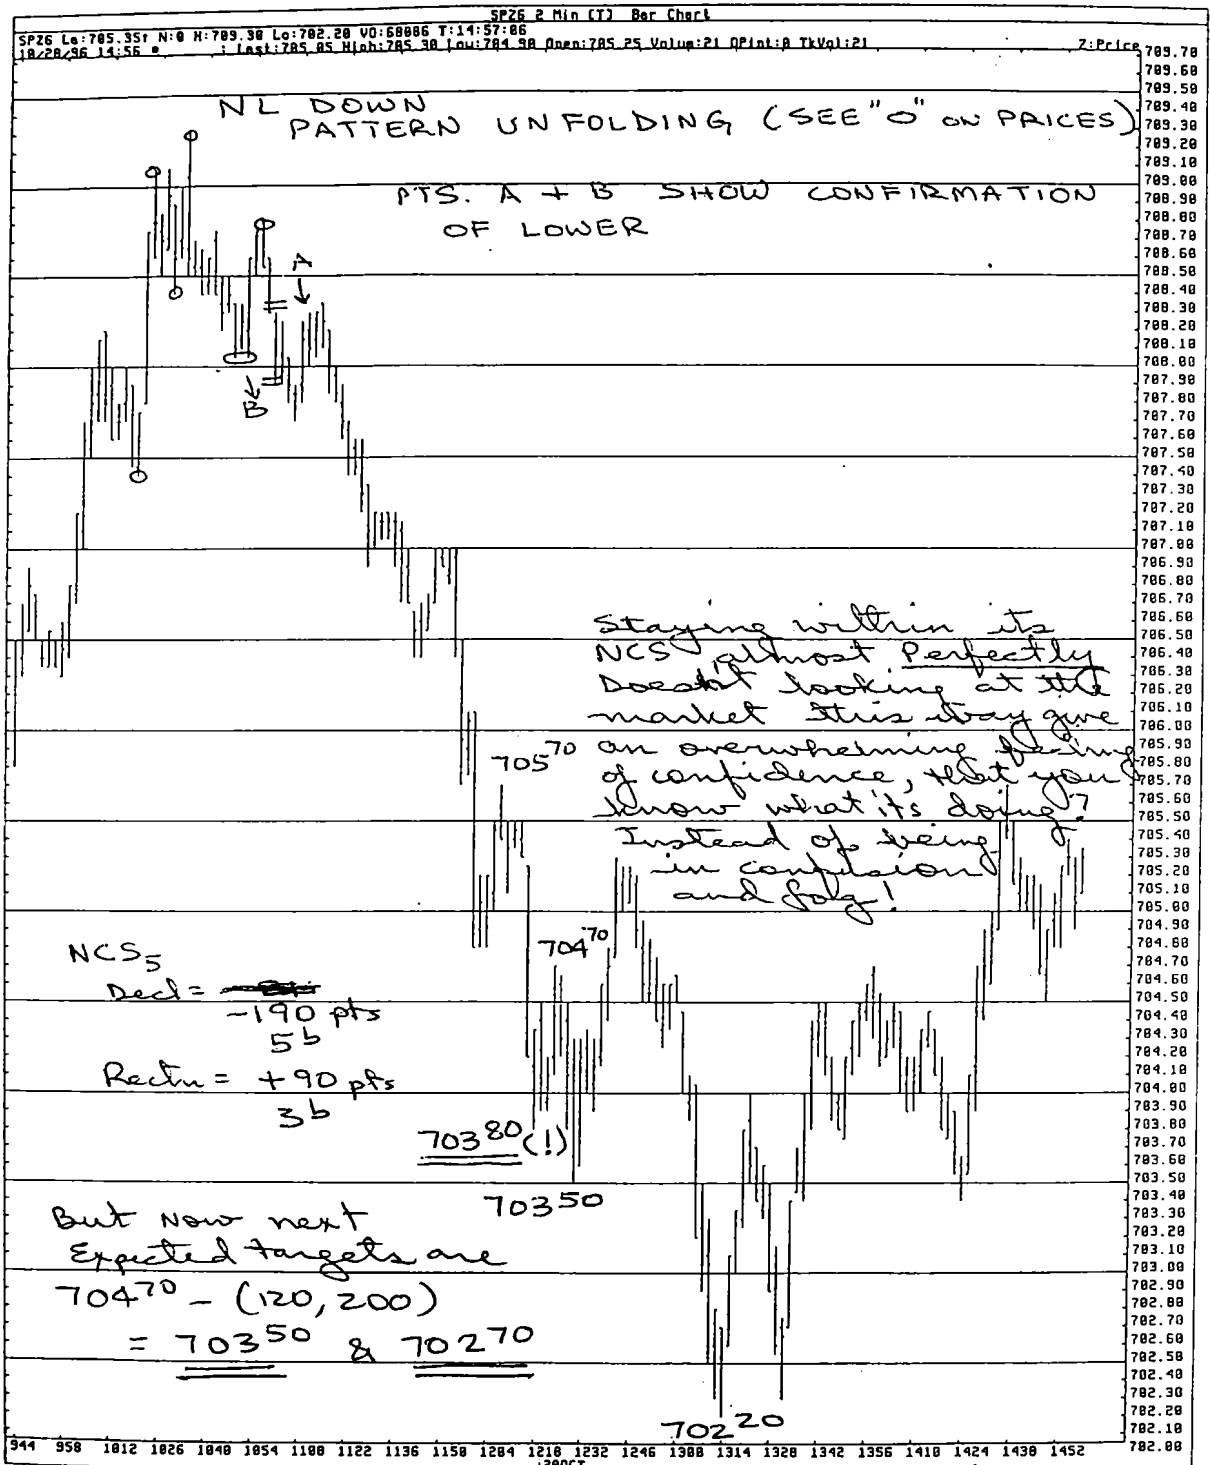 SPZ6 2 Min [T] Bar Chart
SPZ6 La:705.35↑ N:0 H:709.30 Lo:702.20 VO:68086 T:14:57:06
10/28/96 14:56 : Last:705.05 High:705.30 Low:704.90 Open:705.25 Volum:21 OPint:0 TkVol:21 Z:Price
NL DOWN
PATTERN UNFOLDING (SEE "O" ON PRICES)
PTS. A + B SHOW CONFIRMATION
OF LOWER
A
B
Staying within its
NCS almost Perfectly
Doesn't looking at the
market this way give
an overwhelming feeling
of confidence, that you
know what it's doing?
Instead of being
in confusion
and fog!
705 70
704 70
NCS5
Decl =
-190 pts
5b
Rectn = +90 pts
3b
703 80 (!)
703 50
But Now next
Expected targets are
704 70 - (120, 200)
= 703 50 & 702 70
702 20
709.70
709.60
709.50
709.40
709.30
709.20
709.10
709.00
708.90
708.80
708.70
708.60
708.50
708.40
708.30
708.20
708.10
708.00
707.90
707.80
707.70
707.60
707.50
707.40
707.30
707.20
707.10
707.00
706.90
706.80
706.70
706.60
706.50
706.40
706.30
706.20
706.10
706.00
705.90
705.80
705.70
705.60
705.50
705.40
705.30
705.20
705.10
705.00
704.90
704.80
704.70
704.60
704.50
704.40
704.30
704.20
704.10
704.00
703.90
703.80
703.70
703.60
703.50
703.40
703.30
703.20
703.10
703.00
702.90
702.80
702.70
702.60
702.50
702.40
702.30
702.20
702.10
702.00
944 958 1012 1026 1040 1054 1108 1122 1136 1150 1204 1218 1232 1246 1300 1314 1328 1342 1356 1410 1424 1438 1452